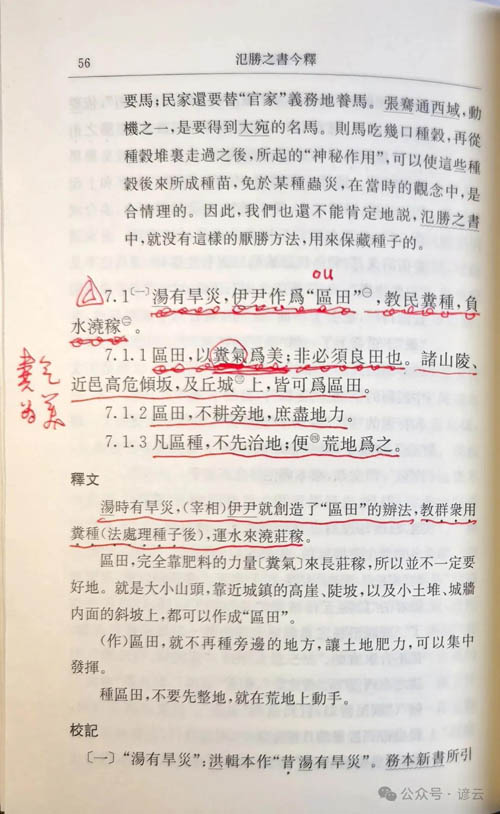 56 氾勝之書今釋
要馬;民家還要替“官家”義務地養馬。張騫通西域,動
機之一,是要得到大宛的名馬。則馬吃幾口種穀,再從
種穀堆裏走過之後,所起的“神秘作用”,可以使這些種
穀後來所成種苗,免於某種蟲災,在當時的觀念中,是
合情理的。因此,我們也還不能肯定地説,氾勝之書
中,就没有這樣的厭勝方法,用來保藏種子的。
ou
7.1〔一〕湯有旱災,伊尹作爲“區田”㊀,教民糞種,負
水澆稼㊁。
7.1.1 區田,以糞氣爲美;非必須良田也。諸山陵、
近邑高危傾坂,及丘城㊂上,皆可爲區田。
糞氣為美
7.1.2 區田,不耕旁地,庶盡地力。
7.1.3 凡區種,不先治地;便㊃荒地爲之。
釋文
湯時有旱災,(宰相)伊尹就創造了“區田”的辦法,教群衆用
糞種(法處理種子後),運水來澆莊稼。
區田,完全靠肥料的力量〔糞氣〕來長莊稼,所以並不一定要
好地。就是大小山頭,靠近城鎮的高崖、陡坡,以及小土堆、城牆
内面的斜坡上,都可以作成“區田”。
(作)區田,就不再種旁邊的地方,讓土地肥力,可以集中
發揮。
種區田,不要先整地,就在荒地上動手。
校記
〔一〕“湯有旱災”:洪輯本作“昔湯有旱災”。務本新書所引
公众号·谚云